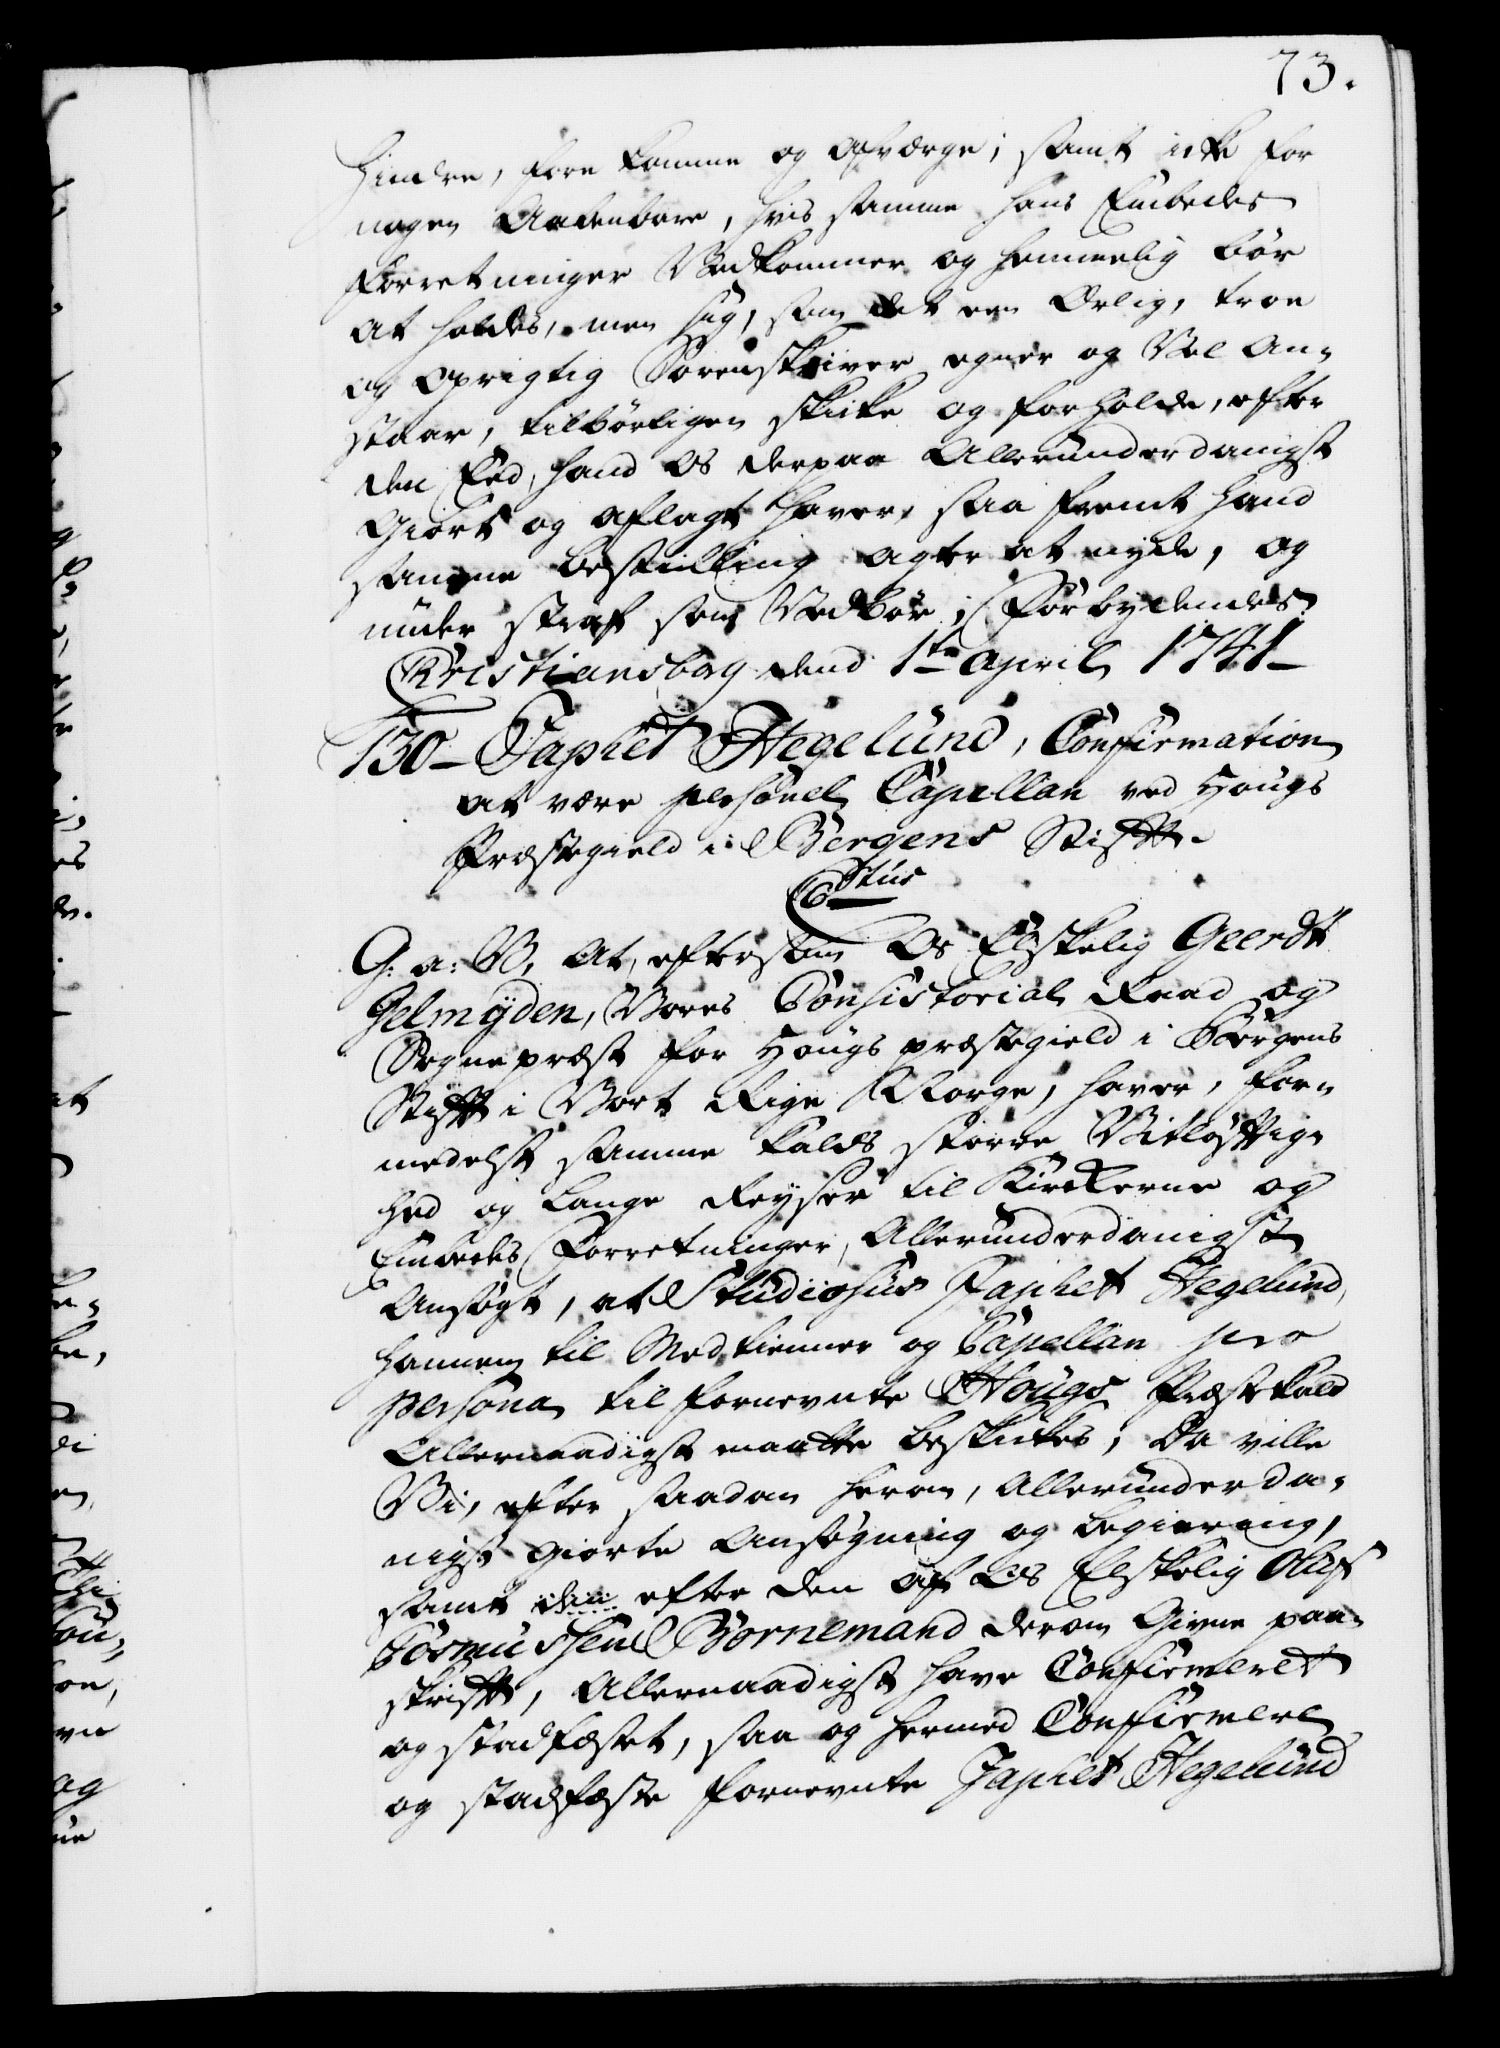 73.
hindre, fore komme og afværge; samt icke for
nogen Aabenbare, hvis samme hans Embedes
Forretninger Vedkommer og hemmelig bør
at holdes, men sig, som det een Ærlig, troe
og oprigtig Sorenskriver egner og Vel an-
staar, tilbørligen skicke og forholde, efter
den Eed, hand Os derpaa Allerunderdanigst
Giort og aflagt haver, saa fremt hand
samme bestilling agter at nyde, og
under straf som Vedbør; Forbydendes
Christiansborg dend 1te April 1741
130 Japhet Hegelund, Confirmation
at være personel Capellan ved Hougs
Præstegield i Bergens Stift.
C 6tus
G: a: V, At, eftersom Os Elskelig Geerdt
Gelmÿden, Vores Consistorial Raad og
Sogne præst for Hougs præstegield i Bergens
Stift i Vort Rige Norge, haver, for-
medelst samme kalds største Vitløftig-
hed og lange Reyser til Kirckerne og
Embeds Forretninger, Allerunderdanigst
Ansøgt, at Studiosus Japhet Hegelund,
hannem til Medtienner og Capellan pro
persona til fornevnte Hougs Præste kald
Allernaadigst maatte beskickes; Da ville
Vi, efter saadan herom, Allerunderda-
nigst giorte Ansøgning og begiering,
samt efter den af Os Elskelig Oluf
Cosmussen Bornemand derom Givne paa-
skrift, Allernaadigst have Confirmeret
og stadfæstet, saa og hermed Confirmere
og stadfæste fornevnte Japhet Hegelund